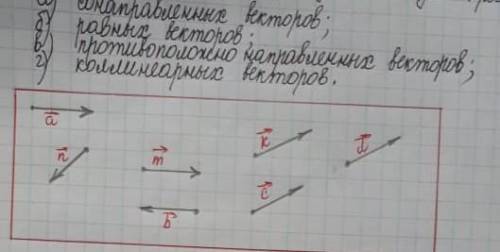 а) сонаправленных векторов;
б) равных векторов;
в) противоположено направленных векторов;
г) коллинеарных векторов.
a
n
m
b
k
c
d